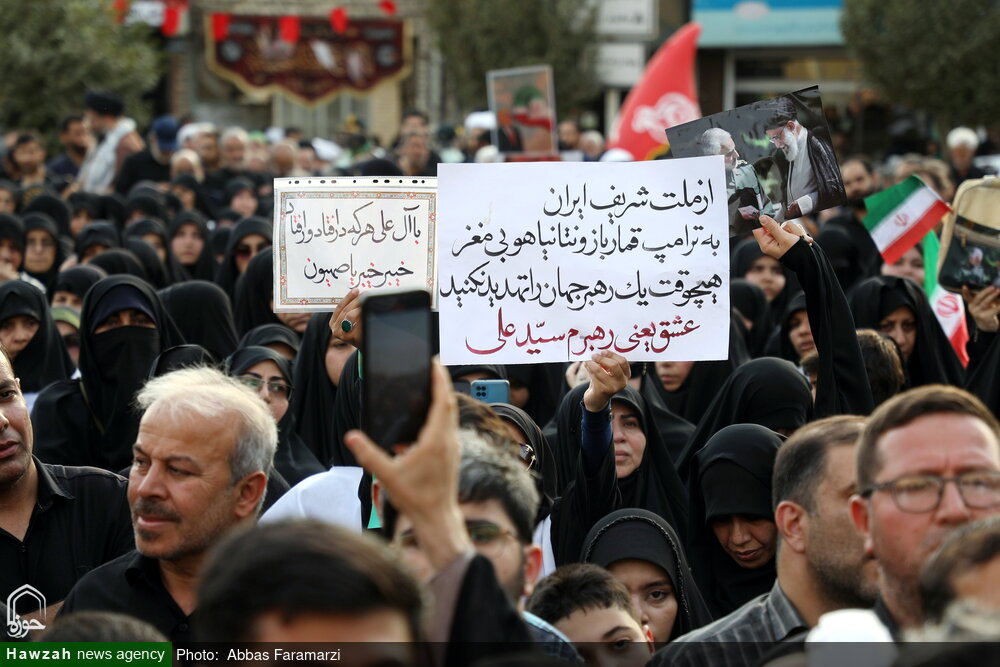 با آل علی هر که در افتاد ور افتاد
خیبر خیبر یا صهیون
از ملت شریف ایران
به ترامپ قمارباز و نتانیاهو بی مغز
هیچوقت یك رهبر جهان را تهدید نکنید
عشق یعنی رهبرم سیّد علی
حوزه
Hawzah news agency Photo: Abbas Faramarzi